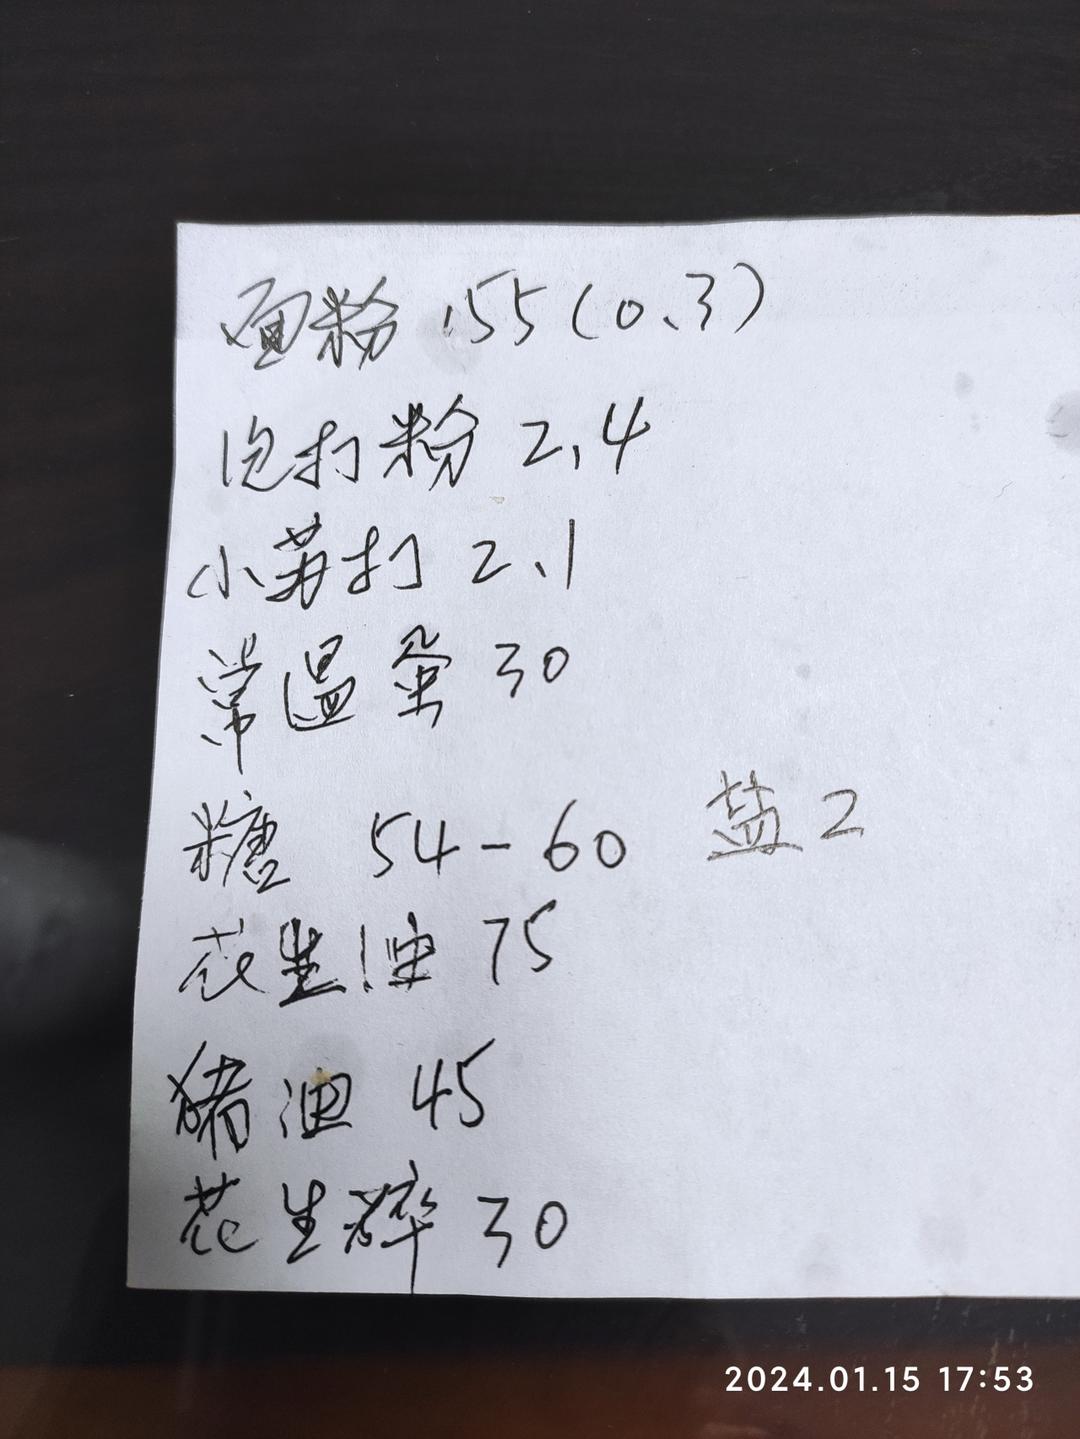 面粉 155(0.3)
泡打粉 2.4
小苏打 2.1
常温蛋 30
糖 54-60 盐2
花生油 75
猪油 45
花生碎 30
2024.01.15 17:53